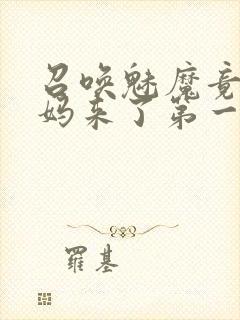 召唤魅魔竟
妈来了第一
羅基